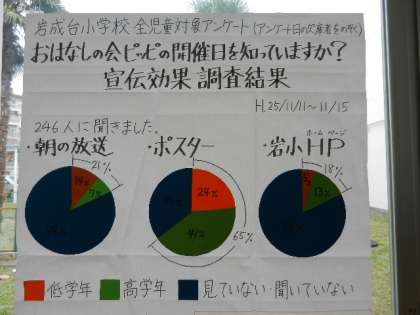 岩成台小学校 全児童対象アンケート(アンケート日の欠席者をのぞく)
おはなしの会ピッピの開催日を知っていますか?
宣伝効果 調査結果
H.25/11/11〜11/15
246人に聞きました。
・朝の放送
21%
14%
7%
・ポスター
24%
41%
65%
ホームページ
・岩小HP
18%
5%
13%
低学年
高学年
見ていない・聞いていない